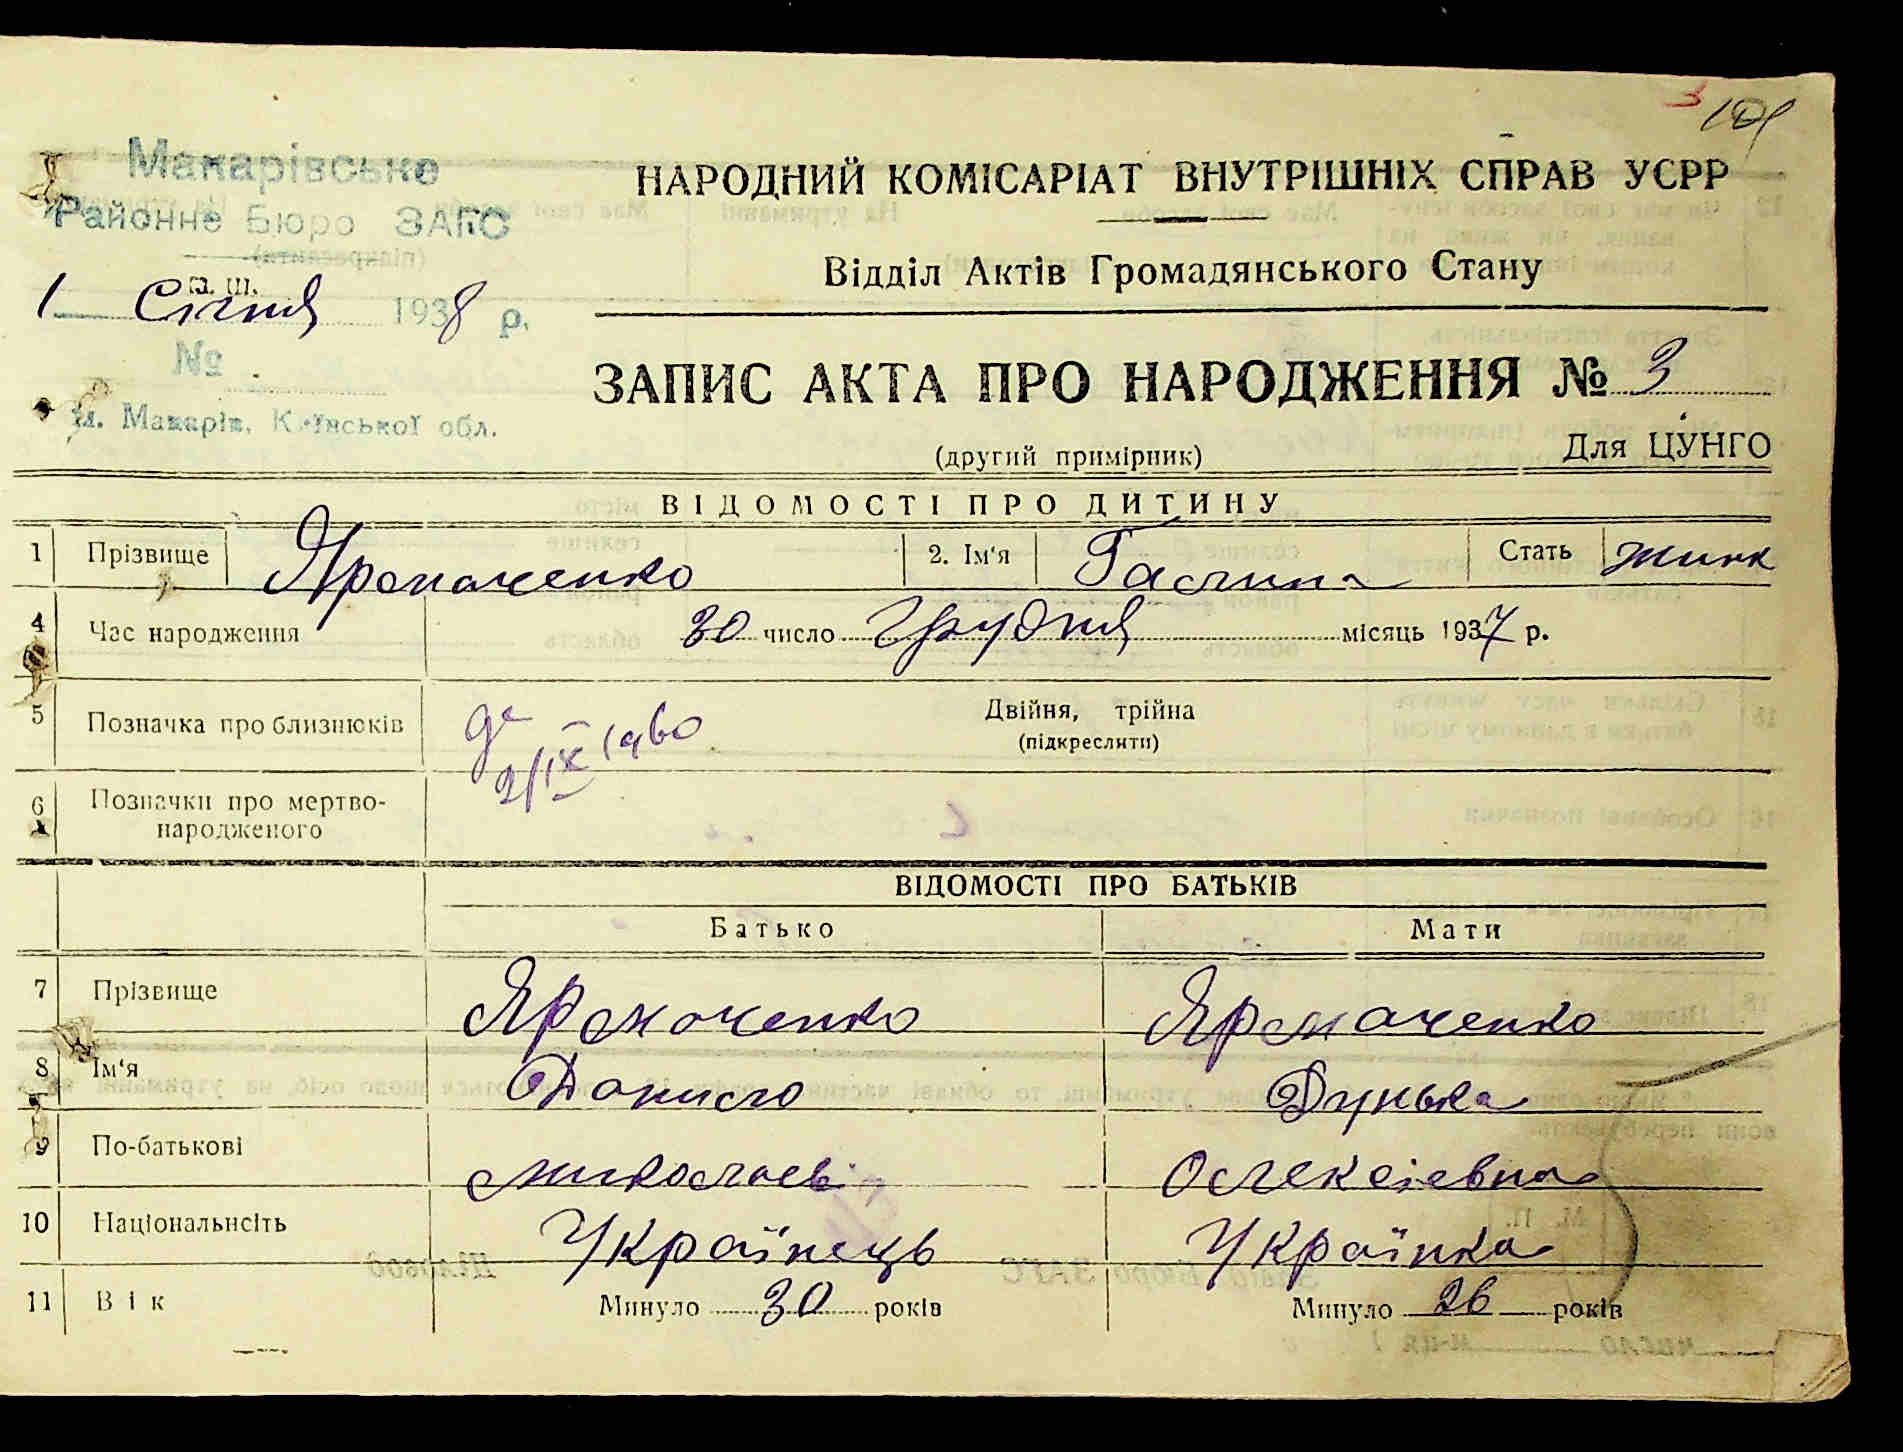 3
Макарівське
Районне Бюро ЗАГС
1 Січня 1938 р.
№
м. Макарів, Київської обл.
НАРОДНИЙ КОМІСАРІАТ ВНУТРІШНІХ СПРАВ УСРР
Відділ Актів Громадянського Стану
ЗАПИС АКТА ПРО НАРОДЖЕННЯ № 3
(другий примірник) Для ЦУНГО
ВІДОМОСТІ ПРО ДИТИНУ
1 Прізвище Ярмоченко 2. Ім'я Галина Стать жінк
4 Час народження 30 число Грудня місяць 1937 р.
5 Позначка про близнюків Двійня, трійна
(підкреслити)
2/IX 1960
6 Позначки про мертво-
народженого
ВІДОМОСТІ ПРО БАТЬКІВ
Батько Мати
7 Прізвище Ярмоченко Ярмаченко
8 Ім'я Данило Дунька
9 По-батькові Миколаєв Олексієвна
10 Національнсіть Українець Українка
11 Вік Минуло 30 років Минуло 26 років